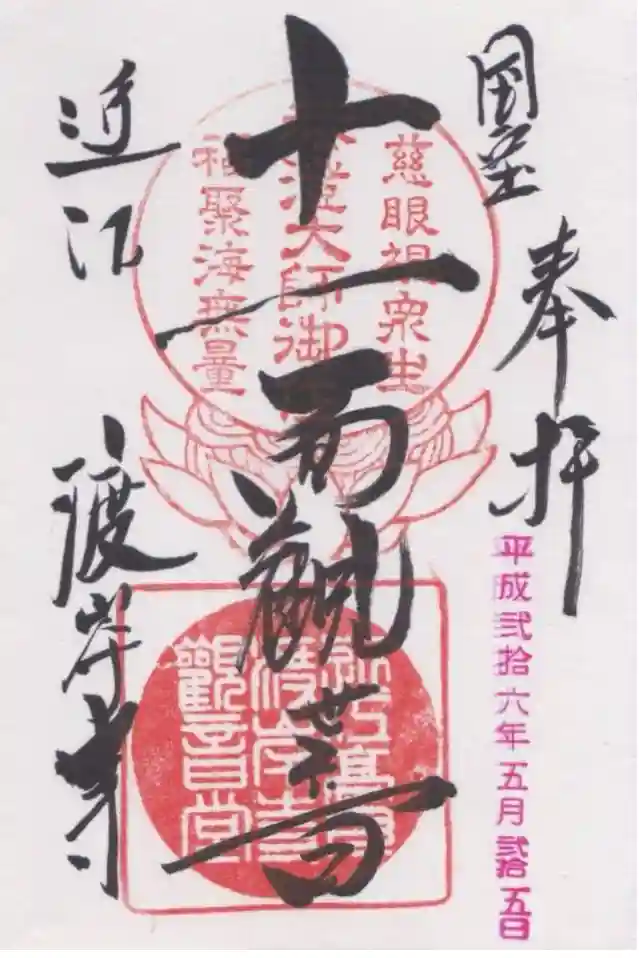 国宝
奉拝
平成弐拾六年五月弐拾五日
慈眼視衆生
大師御
福聚海無量
十一面観世音
渡岸寺
觀音堂
近江
渡岸寺